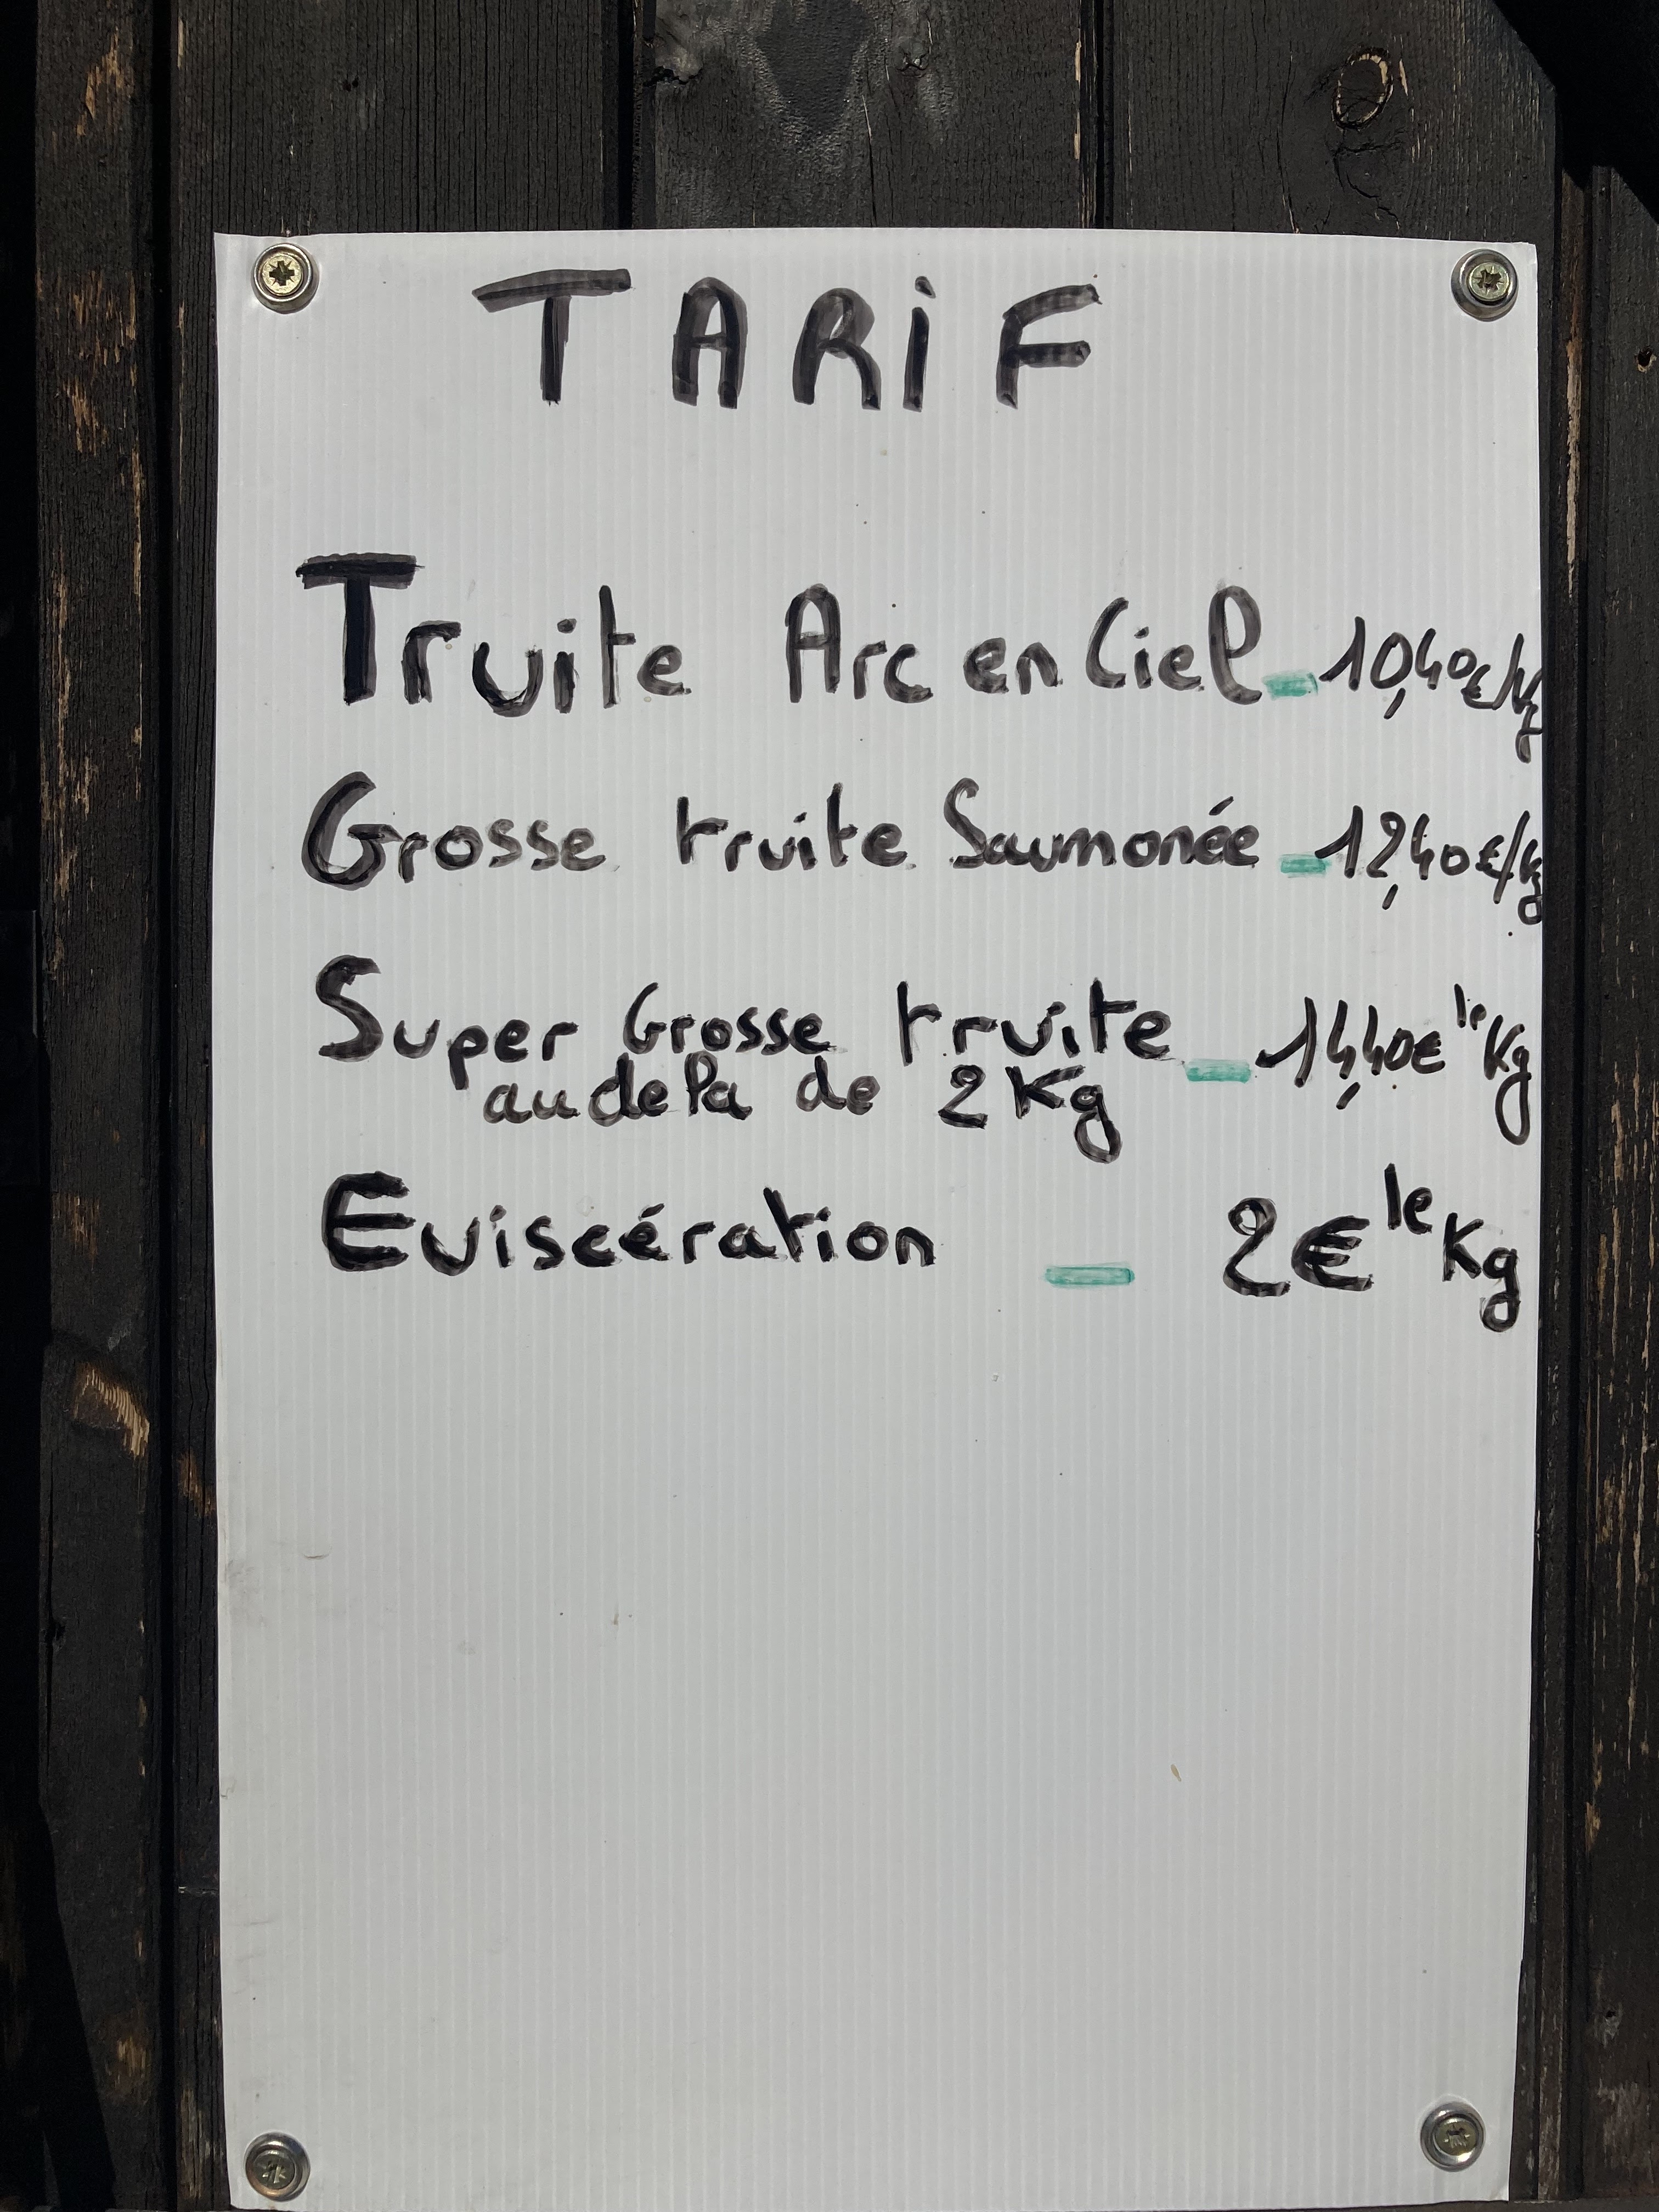 TARiF
Truite Arc en Ciel - 10,40€/kg
Grosse truite Saumonée - 12,40€/kg
Super Grosse truite - 14,40€ le Kg
audela de 2Kg
Eviscération - 2€ le Kg